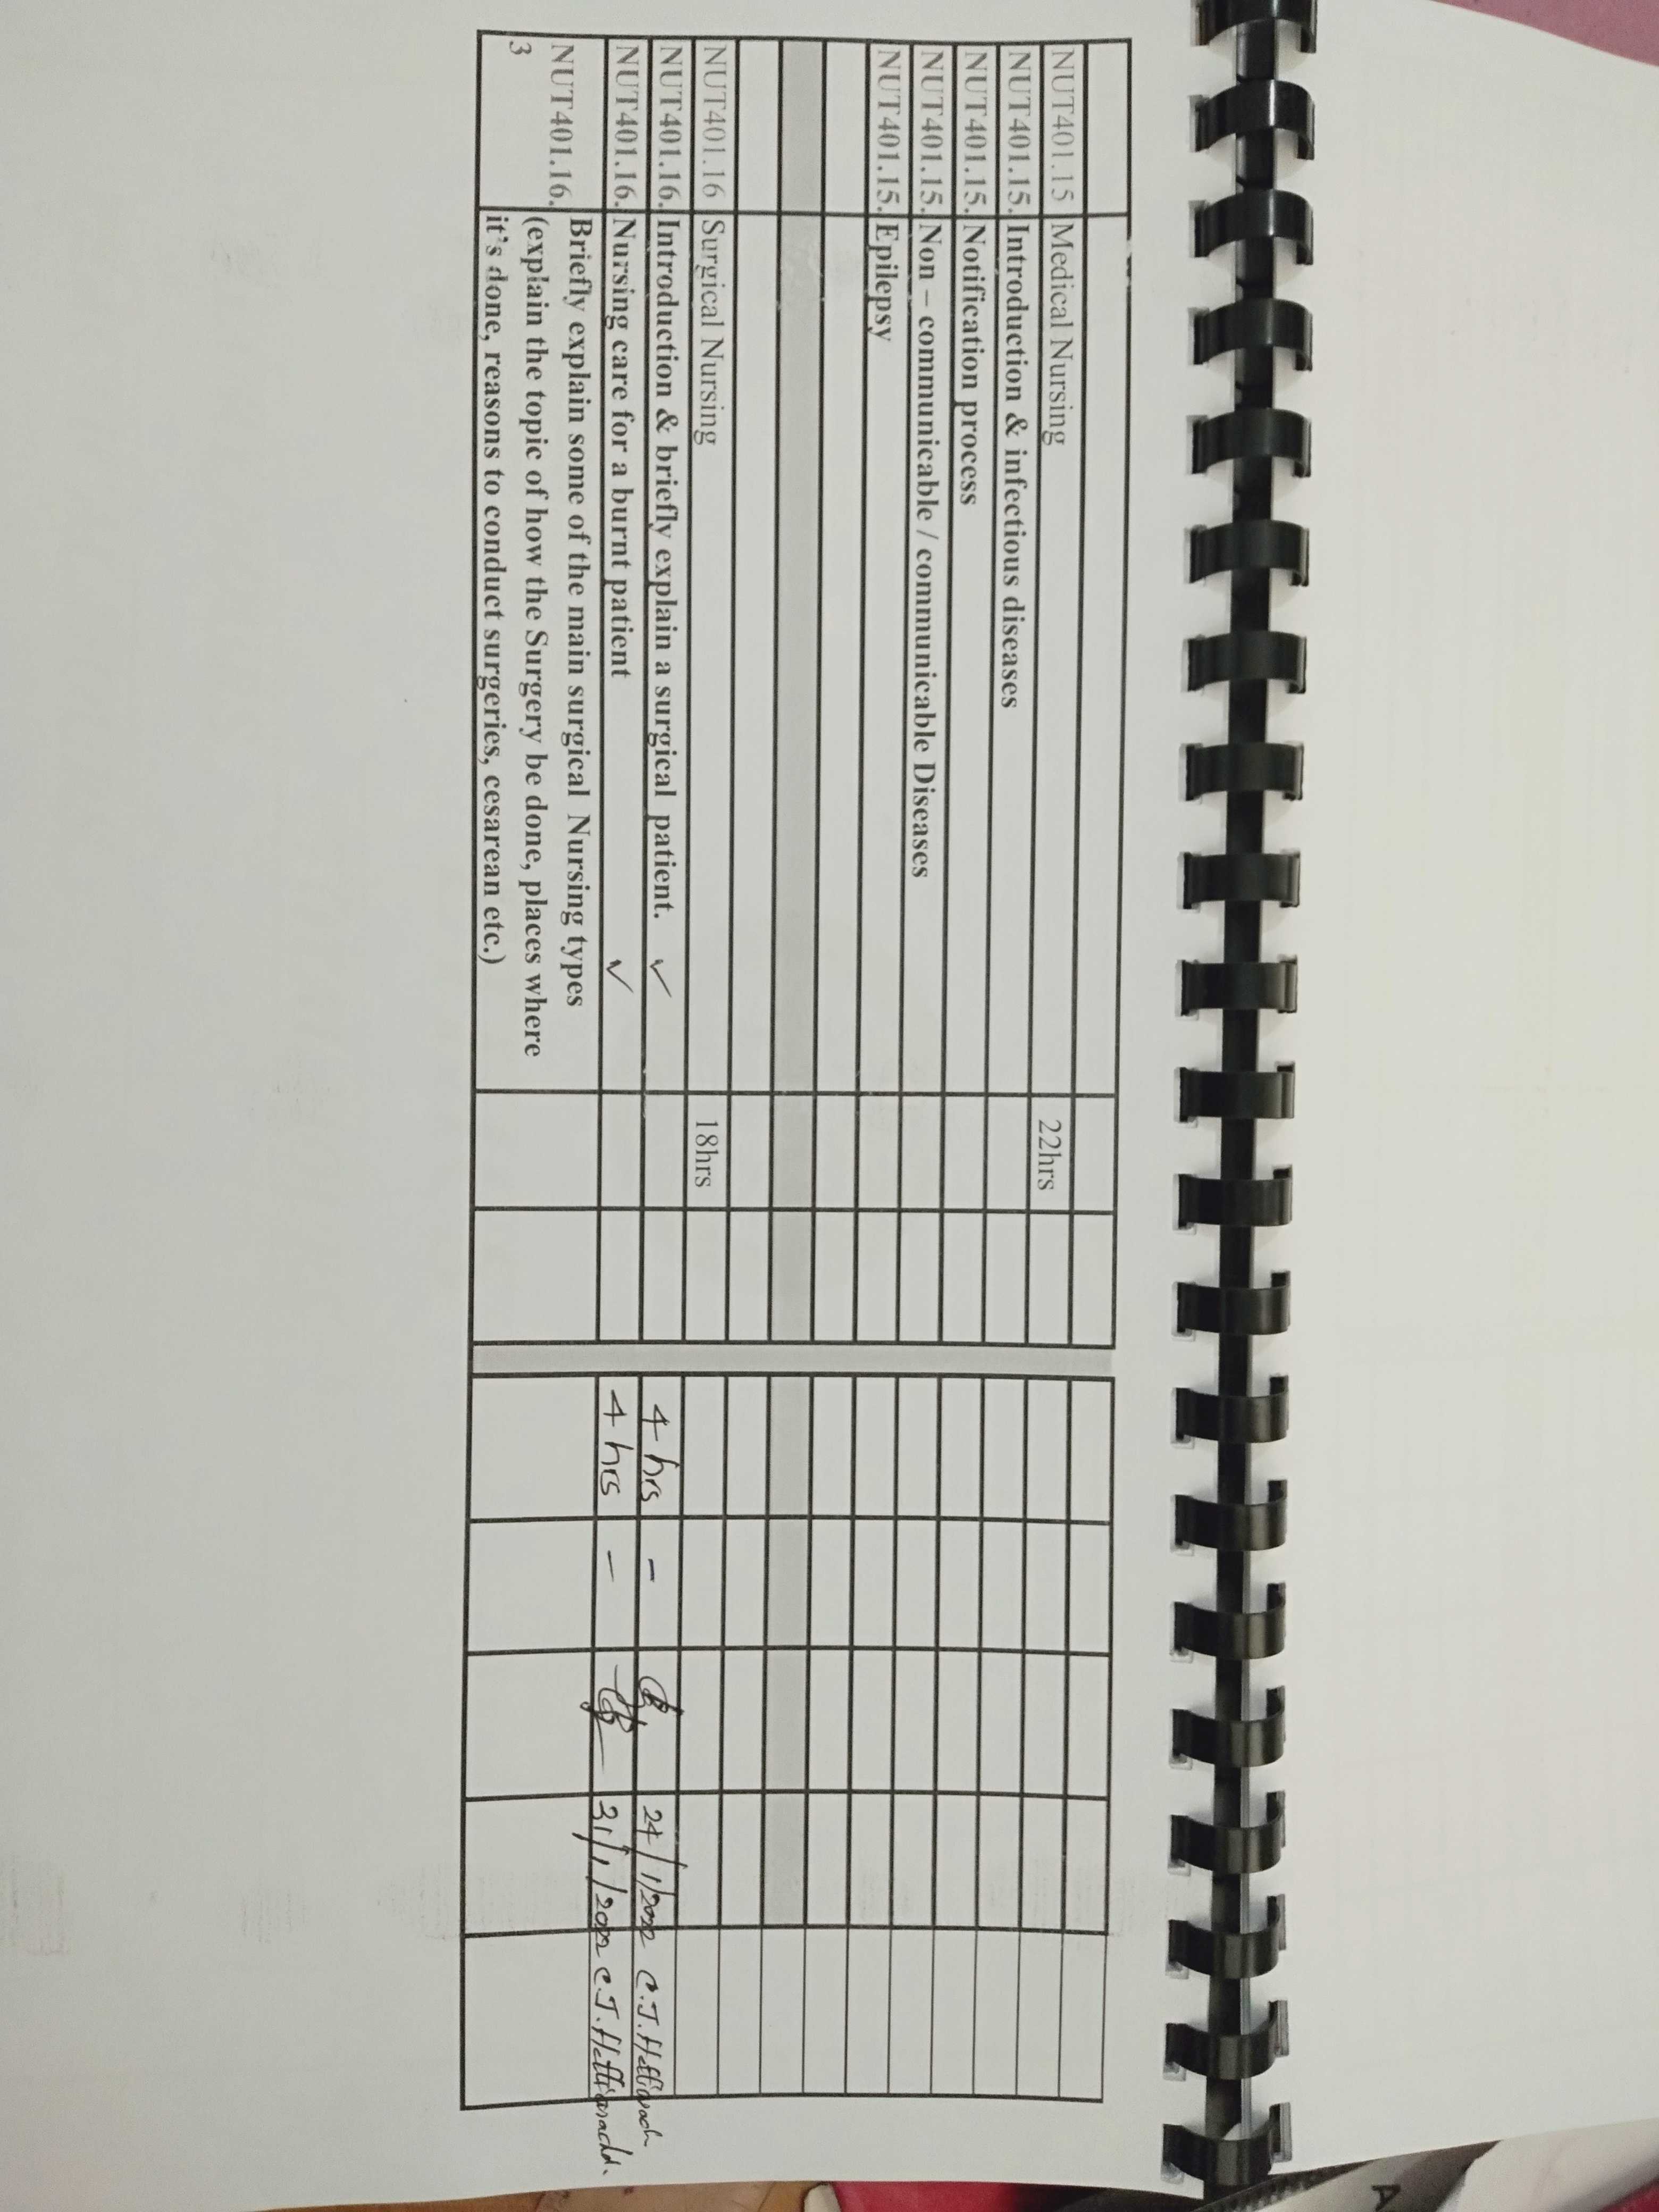 NUT401.15 Medical Nursing 22hrs
NUT401.15. Introduction & infectious diseases
NUT401.15. Notification process
NUT401.15. Non – communicable / communicable Diseases
NUT401.15. Epilepsy
NUT401.16 Surgical Nursing 18hrs
NUT401.16. Introduction & briefly explain a surgical patient. ✓ 4 hrs – 24/1/2022 C.J.Hettiarach
NUT401.16. Nursing care for a burnt patient ✓ 4 hrs – 31/1/2022 C.J.Hettiarachchi.
NUT401.16.
3
Briefly explain some of the main surgical Nursing types
(explain the topic of how the Surgery be done, places where
it's done, reasons to conduct surgeries, cesarean etc.)
A